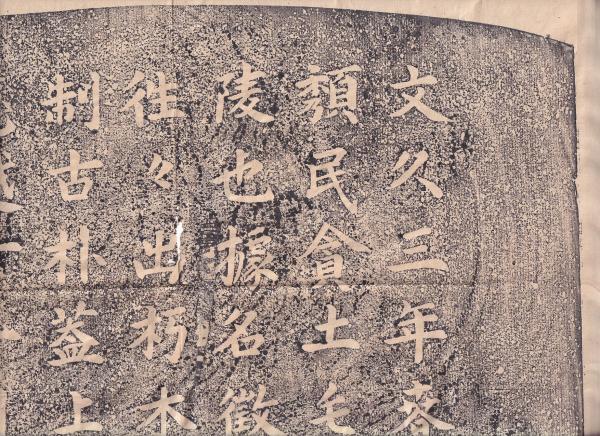 文久三年春
頽民貪土毛
陵也據名徴
往々出朽木
制古朴葢上